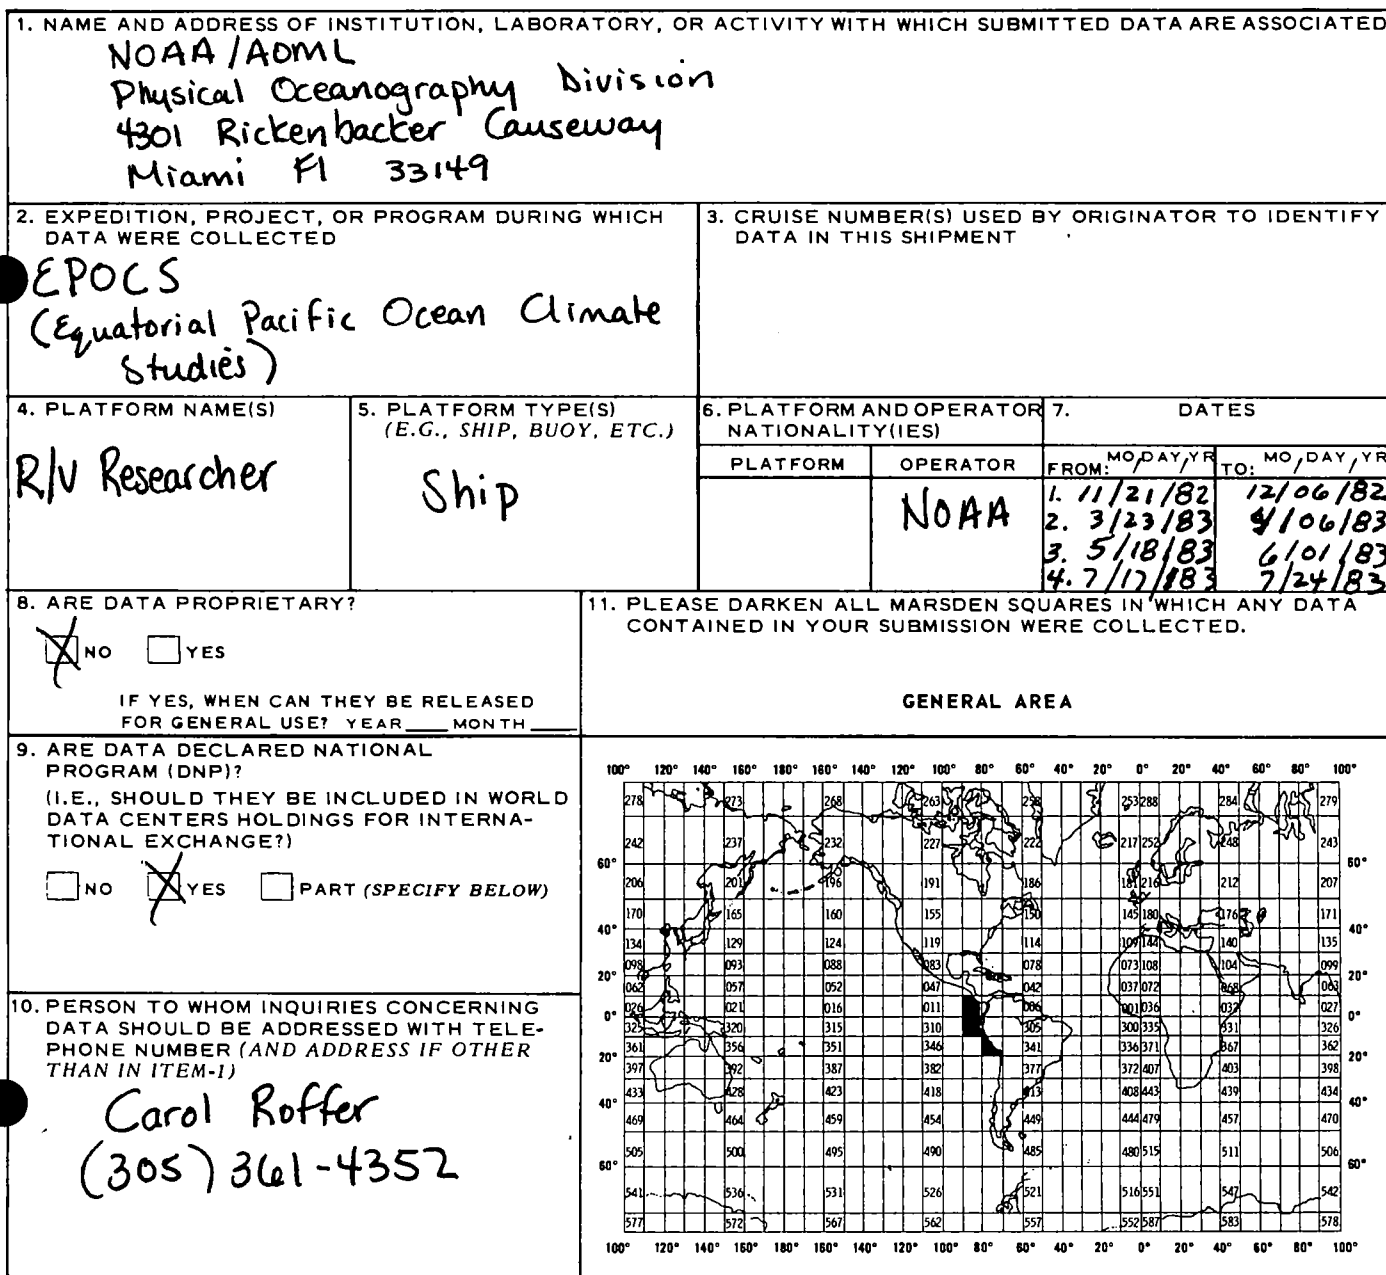 1. NAME AND ADDRESS OF INSTITUTION, LABORATORY, OR ACTIVITY WITH WHICH SUBMITTED DATA ARE ASSOCIATED
NOAA/AOML
Physical Oceanography Division
4301 Rickenbacker Causeway
Miami Fl 33149
2. EXPEDITION, PROJECT, OR PROGRAM DURING WHICH
DATA WERE COLLECTED
EPOCS
(Equatorial Pacific Ocean Climate
Studies)
3. CRUISE NUMBER(S) USED BY ORIGINATOR TO IDENTIFY
DATA IN THIS SHIPMENT
4. PLATFORM NAME(S)
R/V Researcher
5. PLATFORM TYPE(S)
(E.G., SHIP, BUOY, ETC.)
Ship
6. PLATFORM AND OPERATOR
NATIONALITY(IES)
PLATFORM OPERATOR
NOAA
7. DATES
FROM: MO/DAY/YR TO: MO/DAY/YR
1. 11/21/82 12/06/82
2. 3/23/83 4/06/83
3. 5/18/83 6/01/83
4. 7/17/83 7/24/83
8. ARE DATA PROPRIETARY?
NO YES
IF YES, WHEN CAN THEY BE RELEASED
FOR GENERAL USE? YEAR____ MONTH____
9. ARE DATA DECLARED NATIONAL
PROGRAM (DNP)?
(I.E., SHOULD THEY BE INCLUDED IN WORLD
DATA CENTERS HOLDINGS FOR INTERNA-
TIONAL EXCHANGE?)
NO YES PART (SPECIFY BELOW)
10. PERSON TO WHOM INQUIRIES CONCERNING
DATA SHOULD BE ADDRESSED WITH TELE-
PHONE NUMBER (AND ADDRESS IF OTHER
THAN IN ITEM-1)
Carol Roffer
(305) 361-4352
11. PLEASE DARKEN ALL MARSDEN SQUARES IN WHICH ANY DATA
CONTAINED IN YOUR SUBMISSION WERE COLLECTED.
GENERAL AREA
100° 120° 140° 160° 180° 160° 140° 120° 100° 80° 60° 40° 20° 0° 20° 40° 60° 80° 100°
278 273 268 263 258 253 288 284 279
242 237 232 227 222 217 252 248 243
60° 60°
206 201 196 191 186 181 216 212 207
170 165 160 155 150 145 180 176 171
40° 40°
134 129 124 119 114 109 144 140 135
098 093 088 083 078 073 108 104 099
20° 20°
062 057 052 047 042 037 072 068 063
026 021 016 011 006 001 036 032 027
0° 0°
325 320 315 310 305 300 335 331 326
361 356 351 346 341 336 371 367 362
20° 20°
397 392 387 382 377 372 407 403 398
433 428 423 418 413 408 443 439 434
40° 40°
469 464 459 454 449 444 479 457 470
505 500 495 490 485 480 515 511 506
60° 60°
541 536 531 526 521 516 551 547 542
577 572 567 562 557 552 587 583 578
100° 120° 140° 160° 180° 160° 140° 120° 100° 80° 60° 40° 20° 0° 20° 40° 60° 80° 100°